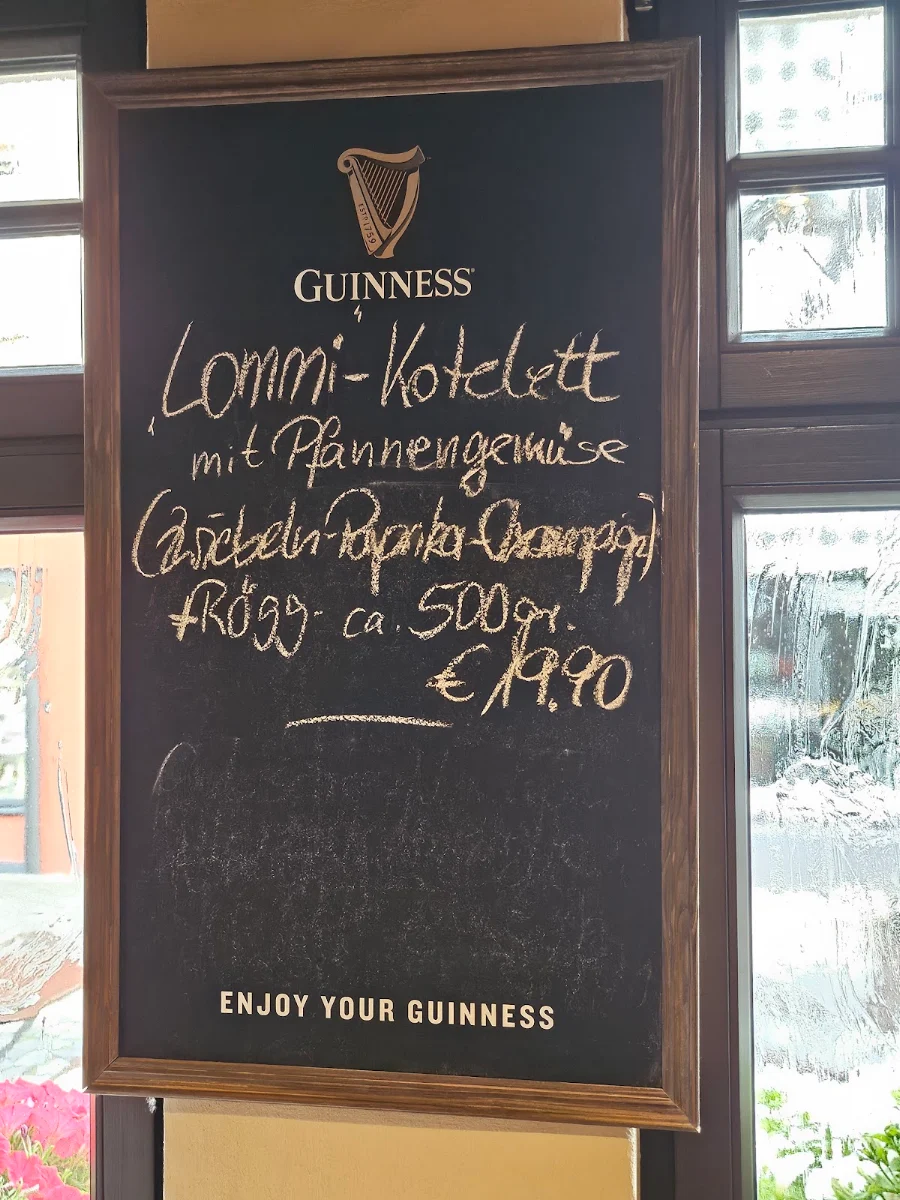 ESTD 1759
GUINNESS
Lommi-Kotelett
mit Pfannengemüse
(Zwiebeln-Paprika-Champig)
+Rögg. ca. 500gr.
€ 19,90
ENJOY YOUR GUINNESS